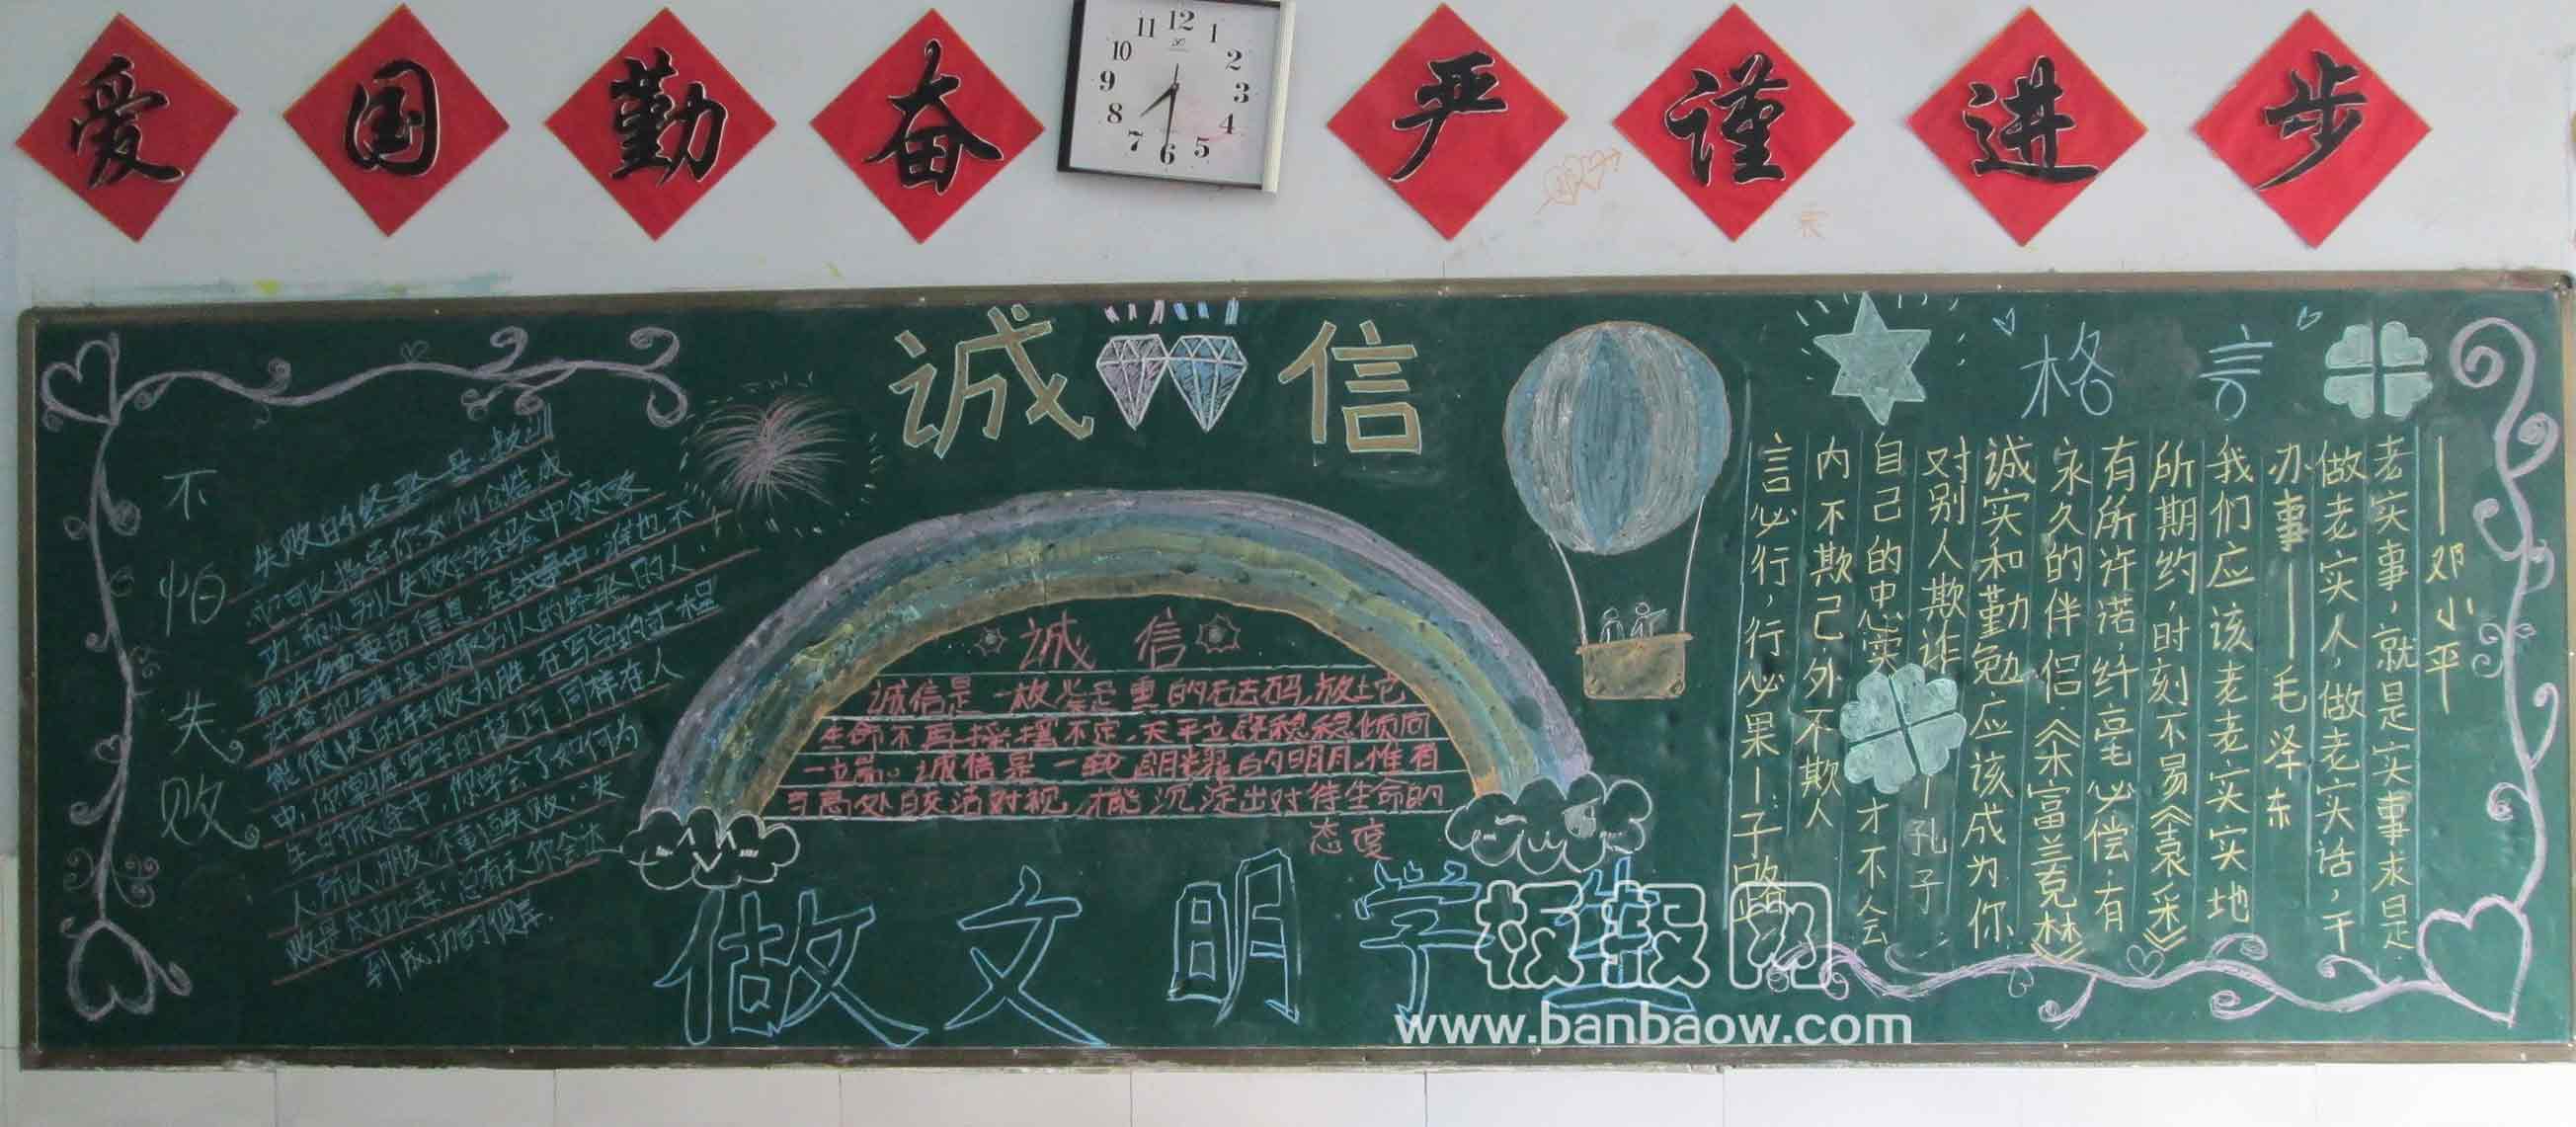 爱国勤奋
严谨进步
11 12 1
10 2
9 3
8 4
7 6 5
诚信
不怕失败
失败的经验是教训
你可以指导你如何创造成
功,而从别人失败的经验中领略
到许多重要的信息.在战事中,谁也不
能很快的转败为胜.在写字的过程
中,你掌握写字的技巧.同样在人
生的旅途中,你学会了如何为
败是成功之母!总有天你会达
到成功的彼岸.
诚 信
诚信是一枚凝足重的砝码,放上它
生命不再摇摆不定,天平立即稳稳倾向
一端。诚信是一轮朗耀的明月,惟有
与高处皎洁对视,才能沉淀出对待生命的
态度
做文明学生
格言
——邓小平
老实事,就是实事求是
做老实人,做老实话,干
办事——毛泽东
我们应该老老实实地
所期约,时刻不易《袁采》
有所许诺,纤毫必偿,有
永久的伴侣.《本富兰克林》
诚实和勤勉应该成为你
对别人欺诈 —孔子
自己的忠实 才不会
内不欺己,外不欺人
言必行,行必果—子路
板报网
www.banbaow.com